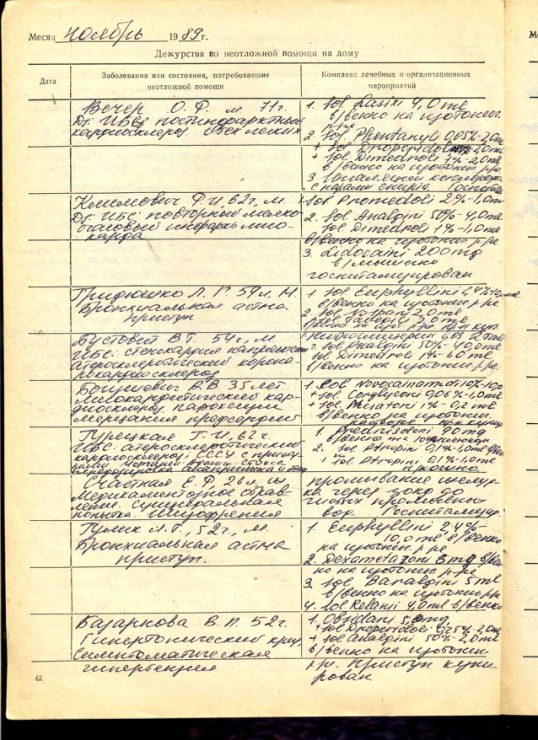 Месяц ноябрь 1989 г.
Дежурства по неотложной помощи на дому
Дата
Заболевания или состояния, потребовавшие
неотложной помощи
Комплекс лечебных и организационных
мероприятий
Вечер О. Ф. м 77 г.
Ds: ИБС: постинфарктный
кардиосклероз отек легких
1. Sol Lasixi 4,0 ml
в/венно на изотонич.
2. Sol Phentanyli 0,05%-2,0 ml
+ Sol Droperidoli 2,0 ml
+ Sol Dimedroli 1%-2,0 ml
в/венно на изотонич р-ре
3. Ингаляции кислорода
с парами спирта.
Климович Ф. И. 62 г. м.
Ds: ИБС: повторный мелко
очаговый инфаркт мио-
карда
1. Sol Promedoli 2%-1,0 ml
2. Sol Analgini 50%-4,0 ml
Sol Dimedroli 1%-1,0 ml
в/венно на изотонич р-ре
3. Lidocaini 200 mg
в/мышечно
госпитализирован
Л. Г. 59 л. м.
Бронхиальная астма
приступ
1. Sol Euphyllini 2,4%
в/венно на изотонич р-ре
2. Sol No-spani 2,0 ml
В. Г. 54 г., м
ИБС: стенокардия напряжения
атеросклеротический корона-
рокардиосклероз
Sol Analgini 50%-4,0 ml
Sol Dimedroli 1%-1,0 ml
в/венно
В. В. 35 лет
миокардитический кар-
диосклероз, пароксизм
мерцания предсердий
1. Sol Novocainamidi 10%
+ Sol Corglyconi 0,06%-1,0 ml
+ Sol Mesatoni 1%-0,2 ml
в/венно на изотонич.
Турецкая Г. И. 62 г.
ИБС: атеросклеротический
кардиосклероз, СССУ с
1. Prednisoloni 90 mg
в/венно
2. Sol Atropini 0,1%-1,0 ml
+ Sol Atropini 0,1%-1,0 ml
Счастная Е. Ф. 26 л.
Медикаментозное отрав-
ление. Суицидальная
попытка. Шизофрения
промывание желуд-
ка через зонд до
чистых промывных
вод. Госпитализир.
Гулик Л. Г., 52 г., м.
Бронхиальная астма
приступ.
1. Euphyllini 2,4%-
10,0 ml в/венно
на изотонич р-ре
2. Dexametazoni 8 mg в/вен
но на изотонич р-ре
3. Sol Baralgini 5 ml
в/венно на изотонич р-ре
4. Sol Relanii 4,0 ml в/венно
Базарнова В. П. 52 г.
Гипертонический криз
Симптоматическая
гипертензия
1. Obsidani 5,0 mg
+ Sol Droperidoli 0,25%-2,0 ml
+ Sol Analgini 50%-2,0 ml
в/венно на изотонич
р-ре. Приступ купи-
рован
42